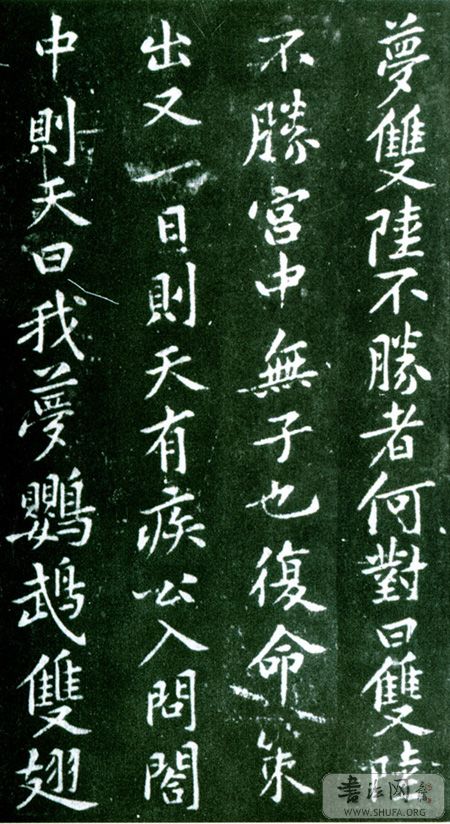 夢雙陸不勝者何對曰雙陸
不勝宮中無子也復命策
出又一日則天有疾公入問閤
中則天曰我夢鸚鵡雙翅
书法网
WWW.SHUFA.ORG